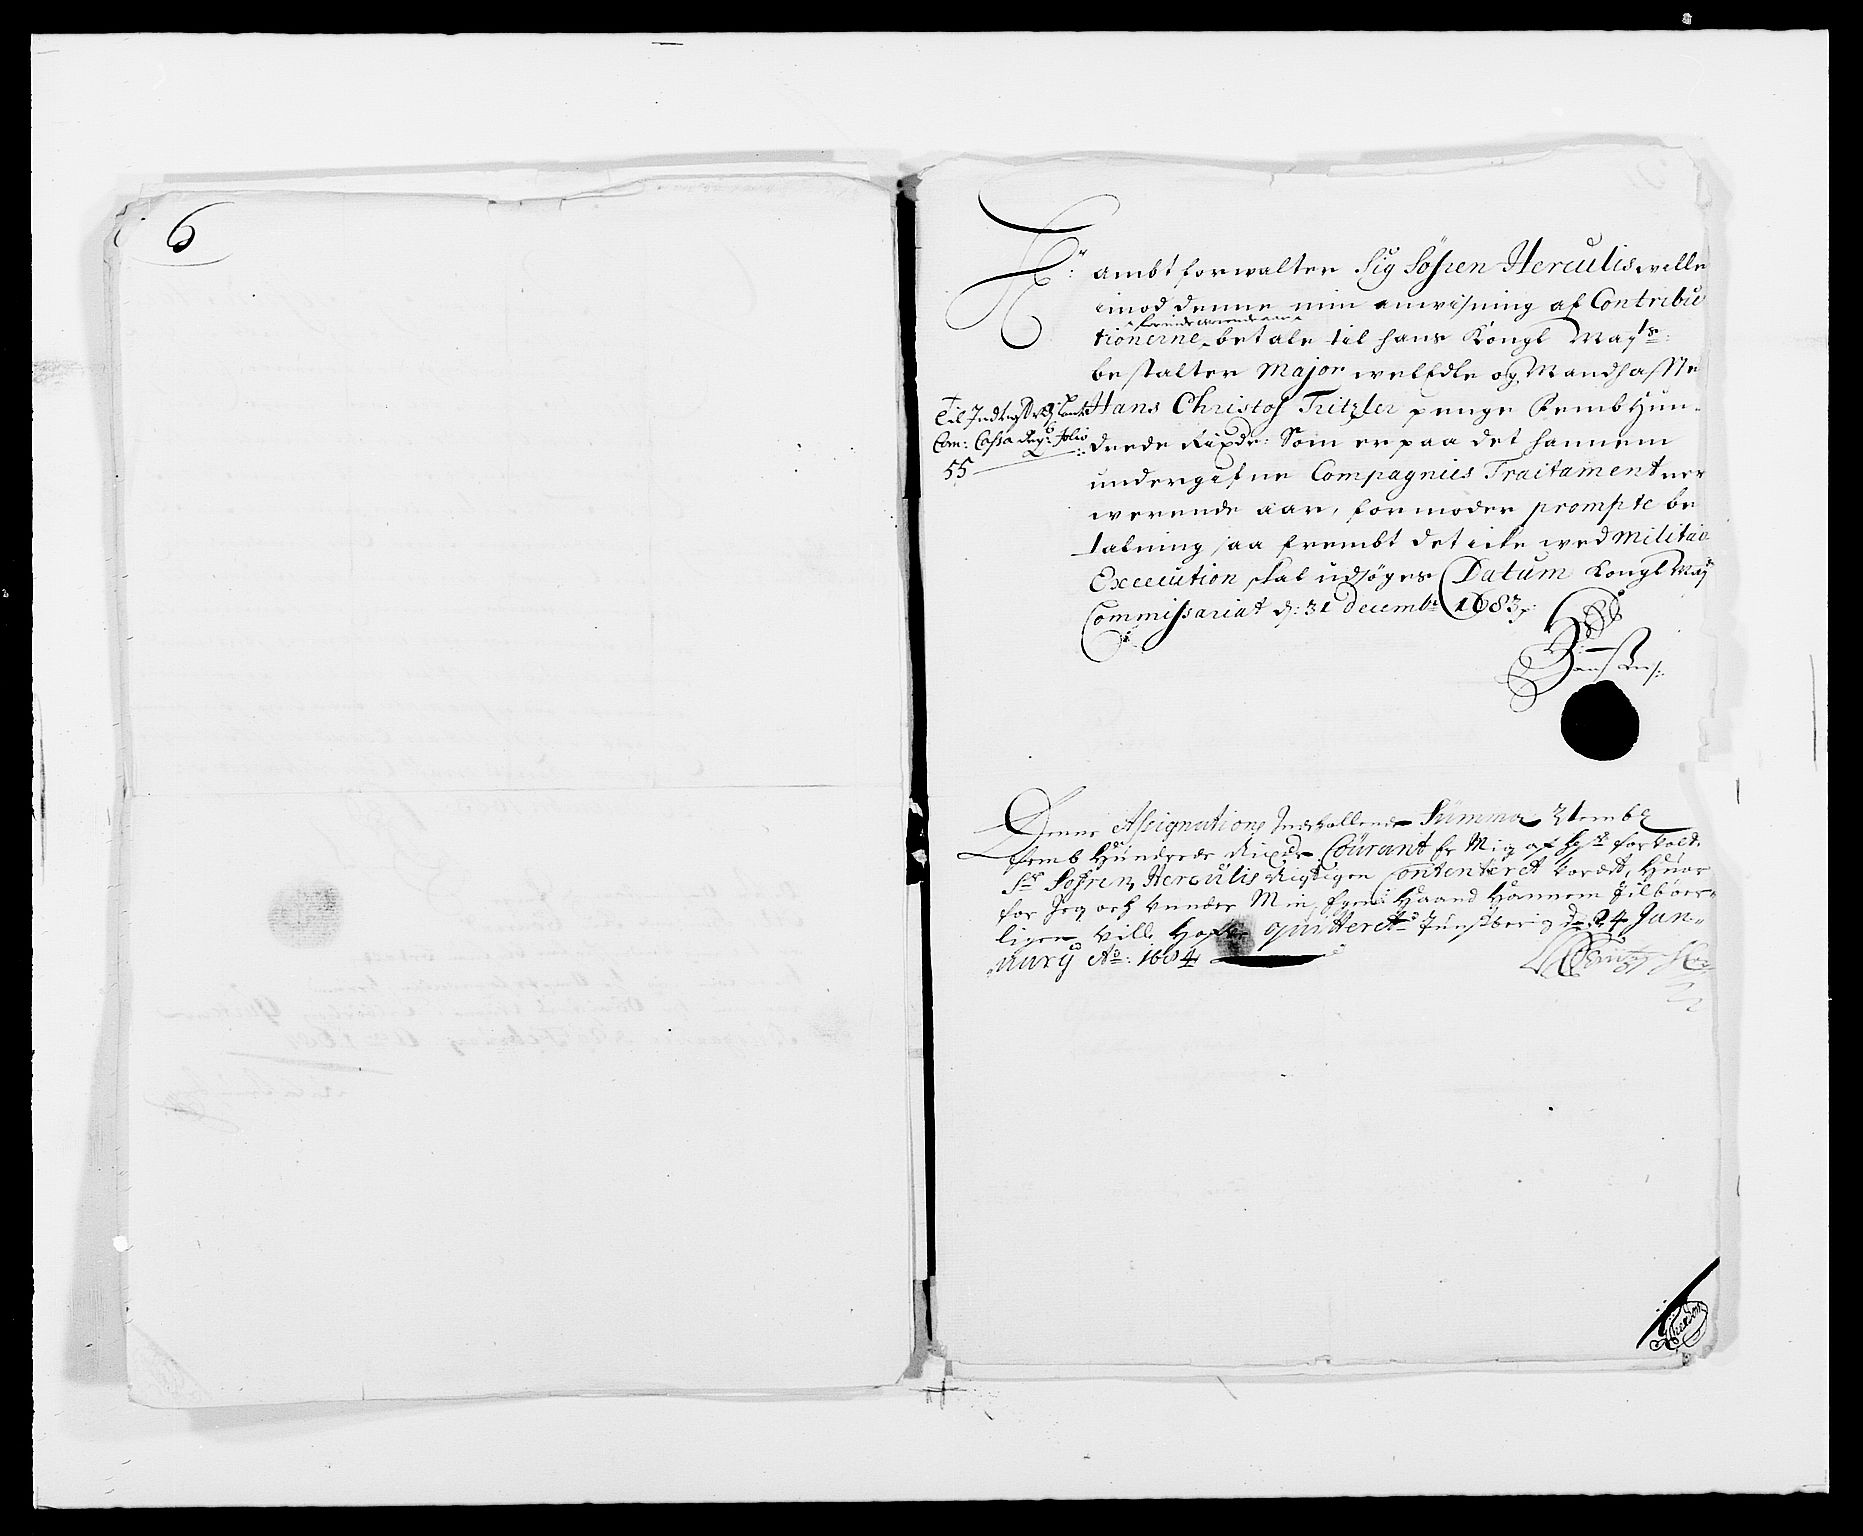 6
H: ambtforwalter Sig Söfren Herculis wille
imod denne min anwisning af Contribu
tionerne betale til hans Kongl Mayts:
bestalter Major welEdle og Mandhaffte
Hans Christof Tritzler penge Femb Hun-
drede Rixdr: Som er paa det hannem
undergifne Compagnies Traitament ner
werende aar, formoder prompte be
talning saa frembt det icke wed Militair
Execution skal udsøges Datum Kongl May
Commissariat d: 31 decembr 1683
Til Indtegt
Com: Cassa Regn: folio
55
Denne Assignations Indholdende Summa
femb Hundrede Rixdr Courant er Mig af
Sr Sofren Herculis Rigtigen Contenteret Vordet, Huor
for Jeg och under Min Egen Haand Hannem tilbør-
ligen Vill Hafve quitteret Tunsberg d: 24 Jan-
uary Ao: 1684